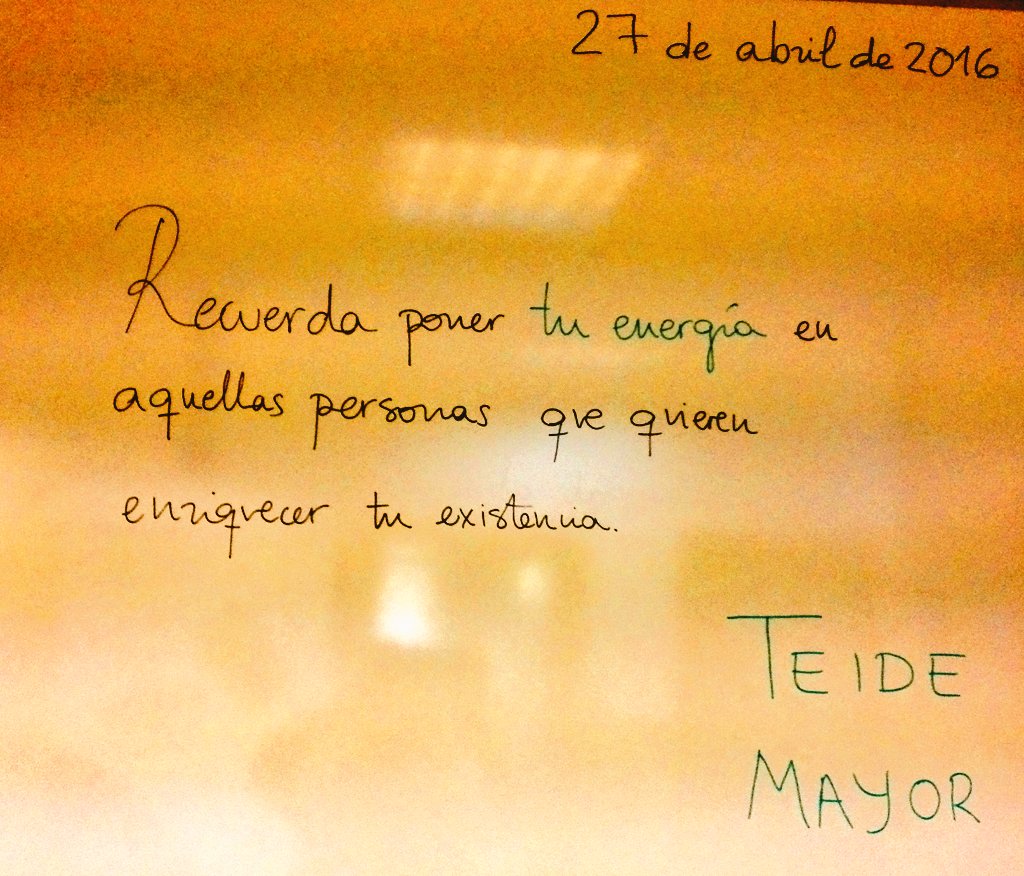 27 de abril de 2016
Recuerda poner tu energía en
aquellas personas que quieren
enriquecer tu existencia.
TEIDE
MAYOR